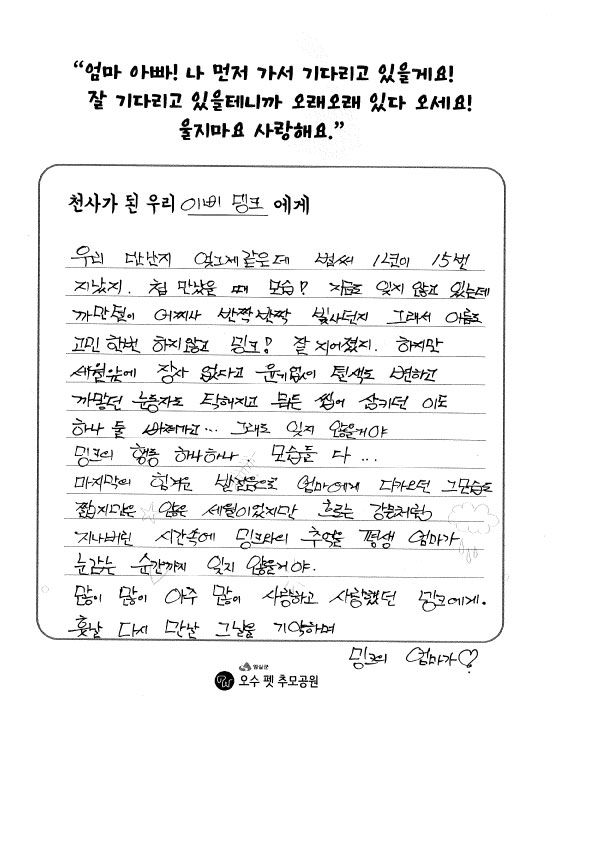 “엄마 아빠! 나 먼저 가서 기다리고 있을게요!
잘 기다리고 있을테니까 오래오래 있다 오세요!
울지마요 사랑해요.”
천사가 된 우리 이삐 밍크 에게
우리 만난지 엊그제같은데 벌써 1년이 15번
지났지. 첨 만났을 때 모습! 지금도 잊지 않고 있는데
까만털이 어찌나 반짝반짝 빛나던지 그래서 이름도
고민 한번 하지않고 밍크! 잘 지어졌지. 하지만
세월앞에 장사 없다고 윤기없이 털색도 변하고
까맣던 눈동자도 탁해지고 뭐든 씹어 삼키던 이도
하나 둘 빠져가고... 그래도 잊지 않을거야
밍크의 행동 하나하나. 모습들 다...
마지막의 힘겨운 발걸음으로 엄마에게 다가오던 그모습도
짧지만은 않은 세월이었지만 흐르는 강물처럼
지나버린 시간속에 밍크와의 추억을 평생 엄마가
눈감는 순간까지 잊지 않을거야.
많이 많이 아주 많이 사랑하고 사랑했던 밍크에게.
훗날 다시 만날 그날을 기약하며
밍크의 엄마가♡
임실군
오수 펫 추모공원